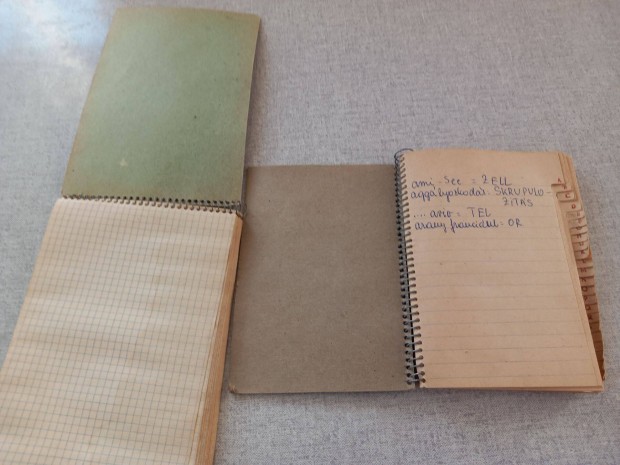 ami-See = ZELL
aggályoskodás: SKRUPULO-
ZITÁS
.... ario = TEL
arany franciául - OR